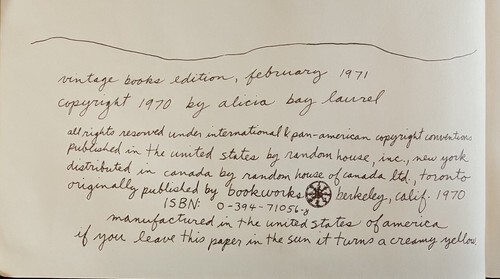 vintage books edition, february 1971
copyright 1970 by alicia bay laurel
all rights reserved under international & pan-american copyright conventions
published in the united states by random house, inc., new york
distributed in canada by random house of canada ltd., toronto
originally published by bookworks berkeley, calif. 1970
ISBN: 0-394-71056-8
manufactured in the united states of america
if you leave this paper in the sun it turns a creamy yellow.